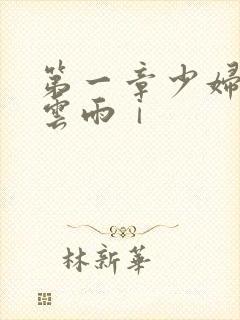 第一章少婦
雲雨｜
林新華